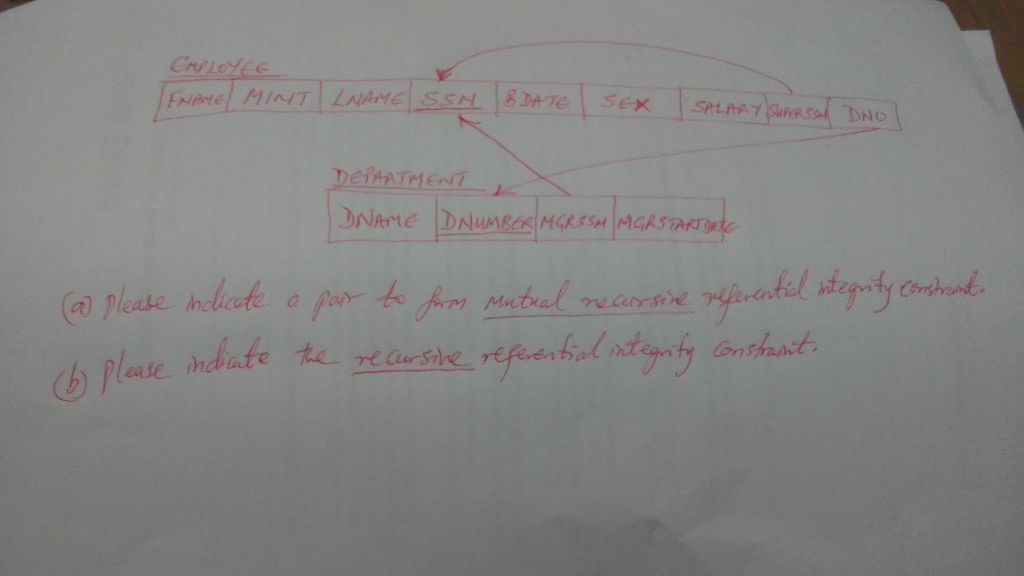 EMPLOYEE
FNAME MINIT LNAME SSN BDATE SEX SALARY SUPERSSN DNO
DEPARTMENT
DNAME DNUMBER MGRSSN MGRSTARTDATE
(a) Please indicate a pair to form mutual recursive referential integrity constraint.
(b) Please indicate the recursive referential integrity constraint.